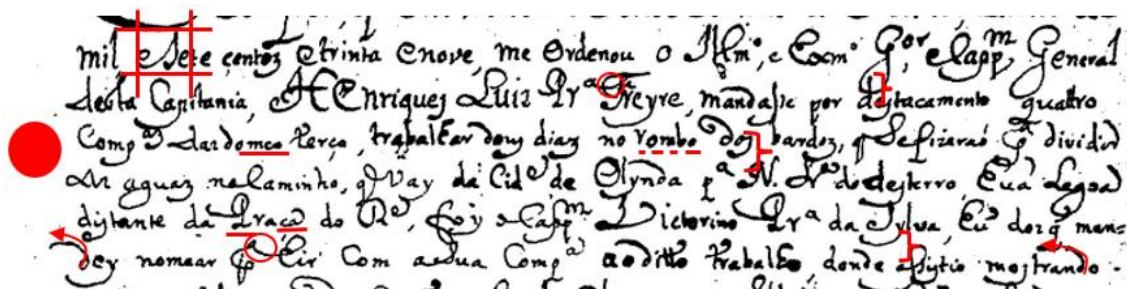 mil e Sete centos e trinta e nove, me Ordenou o Illmº, e Excmº Gor, e Cappm General
desta Capitania, Henrique Luis Prª Freyre, mandasse por destacamento quatro
Compªs dardomeo terço, trabalhar dous dias no rombo dos bandos, q se fizeraó pª dividir
As aguas no Caminho, q vay da Cidº de Olynda pª N. Srª do desterro, e uã Lagoa
distante da Praça do Re, foy o Cappm Victorino Prª da Sylva, e u dos q man=
dey nomear pª Eir Com a Sua Compª ao ditto trabalho, donde assistio mostrando